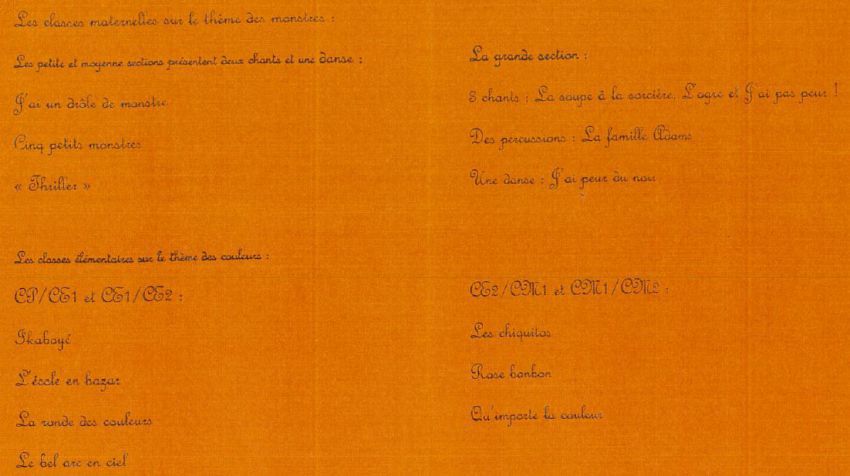 Les classes maternelles sur le thème des monstres :
Les petite et moyenne sections présentent deux chants et une danse :
J'ai un drôle de monstre
Cinq petits monstres
« Thriller »
La grande section :
3 chants : La soupe à la sorcière, L'ogre et J'ai pas peur !
Des percussions : La famille Adams
Une danse : J'ai peur du noir
Les classes élémentaires sur le thème des couleurs :
CP/CE1 et CE1/CE2 :
Ikaboyé
L'école en bazar
La ronde des couleurs
Le bel arc en ciel
CE2/CM1 et CM1/CM2 :
Les chiquitos
Rose bonbon
Qu'importe la couleur